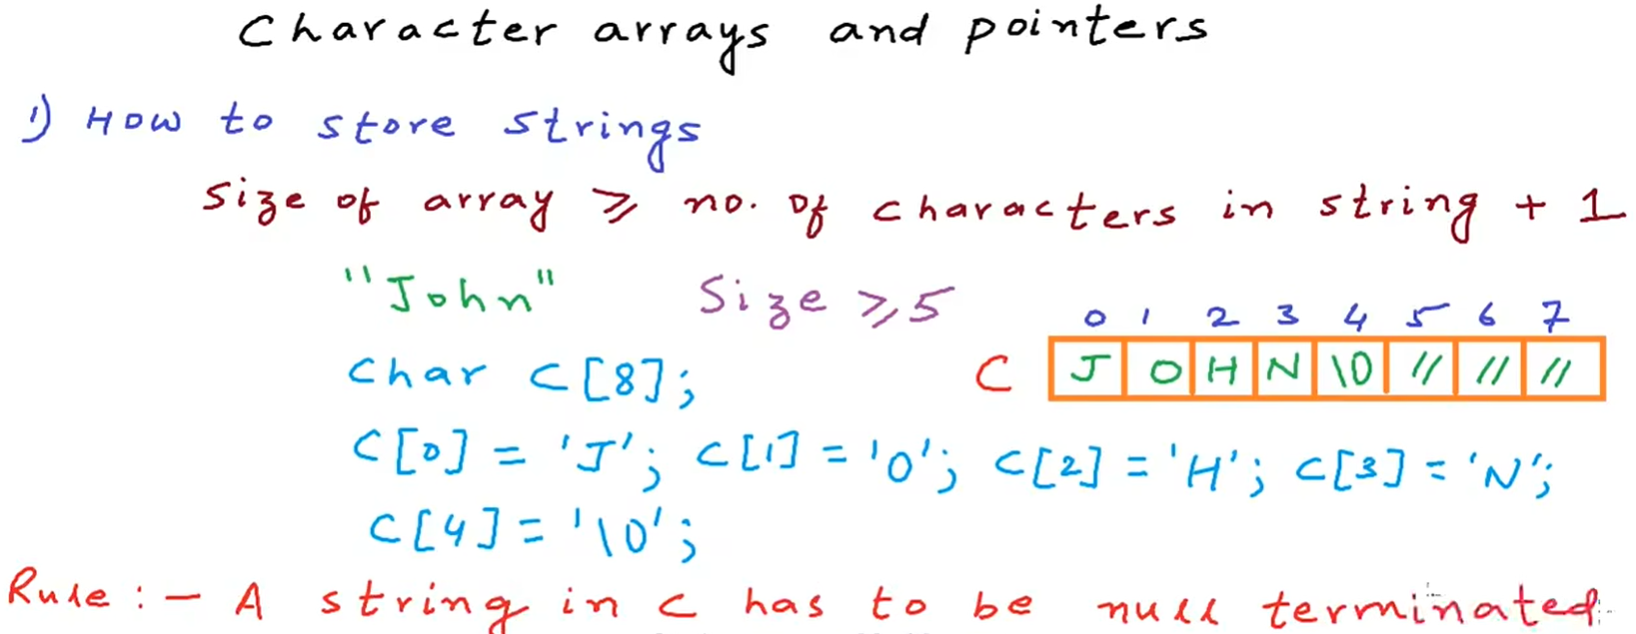 Character arrays and pointers
1) How to store strings
Size of array ≥ no. of characters in string + 1
"John" Size ≥ 5
0 1 2 3 4 5 6 7
Char C[8]; C J O H N \0 // // //
C[0] = 'J'; C[1] = 'O'; C[2] = 'H'; C[3] = 'N';
C[4] = '\0';
Rule :- A string in C has to be null terminated